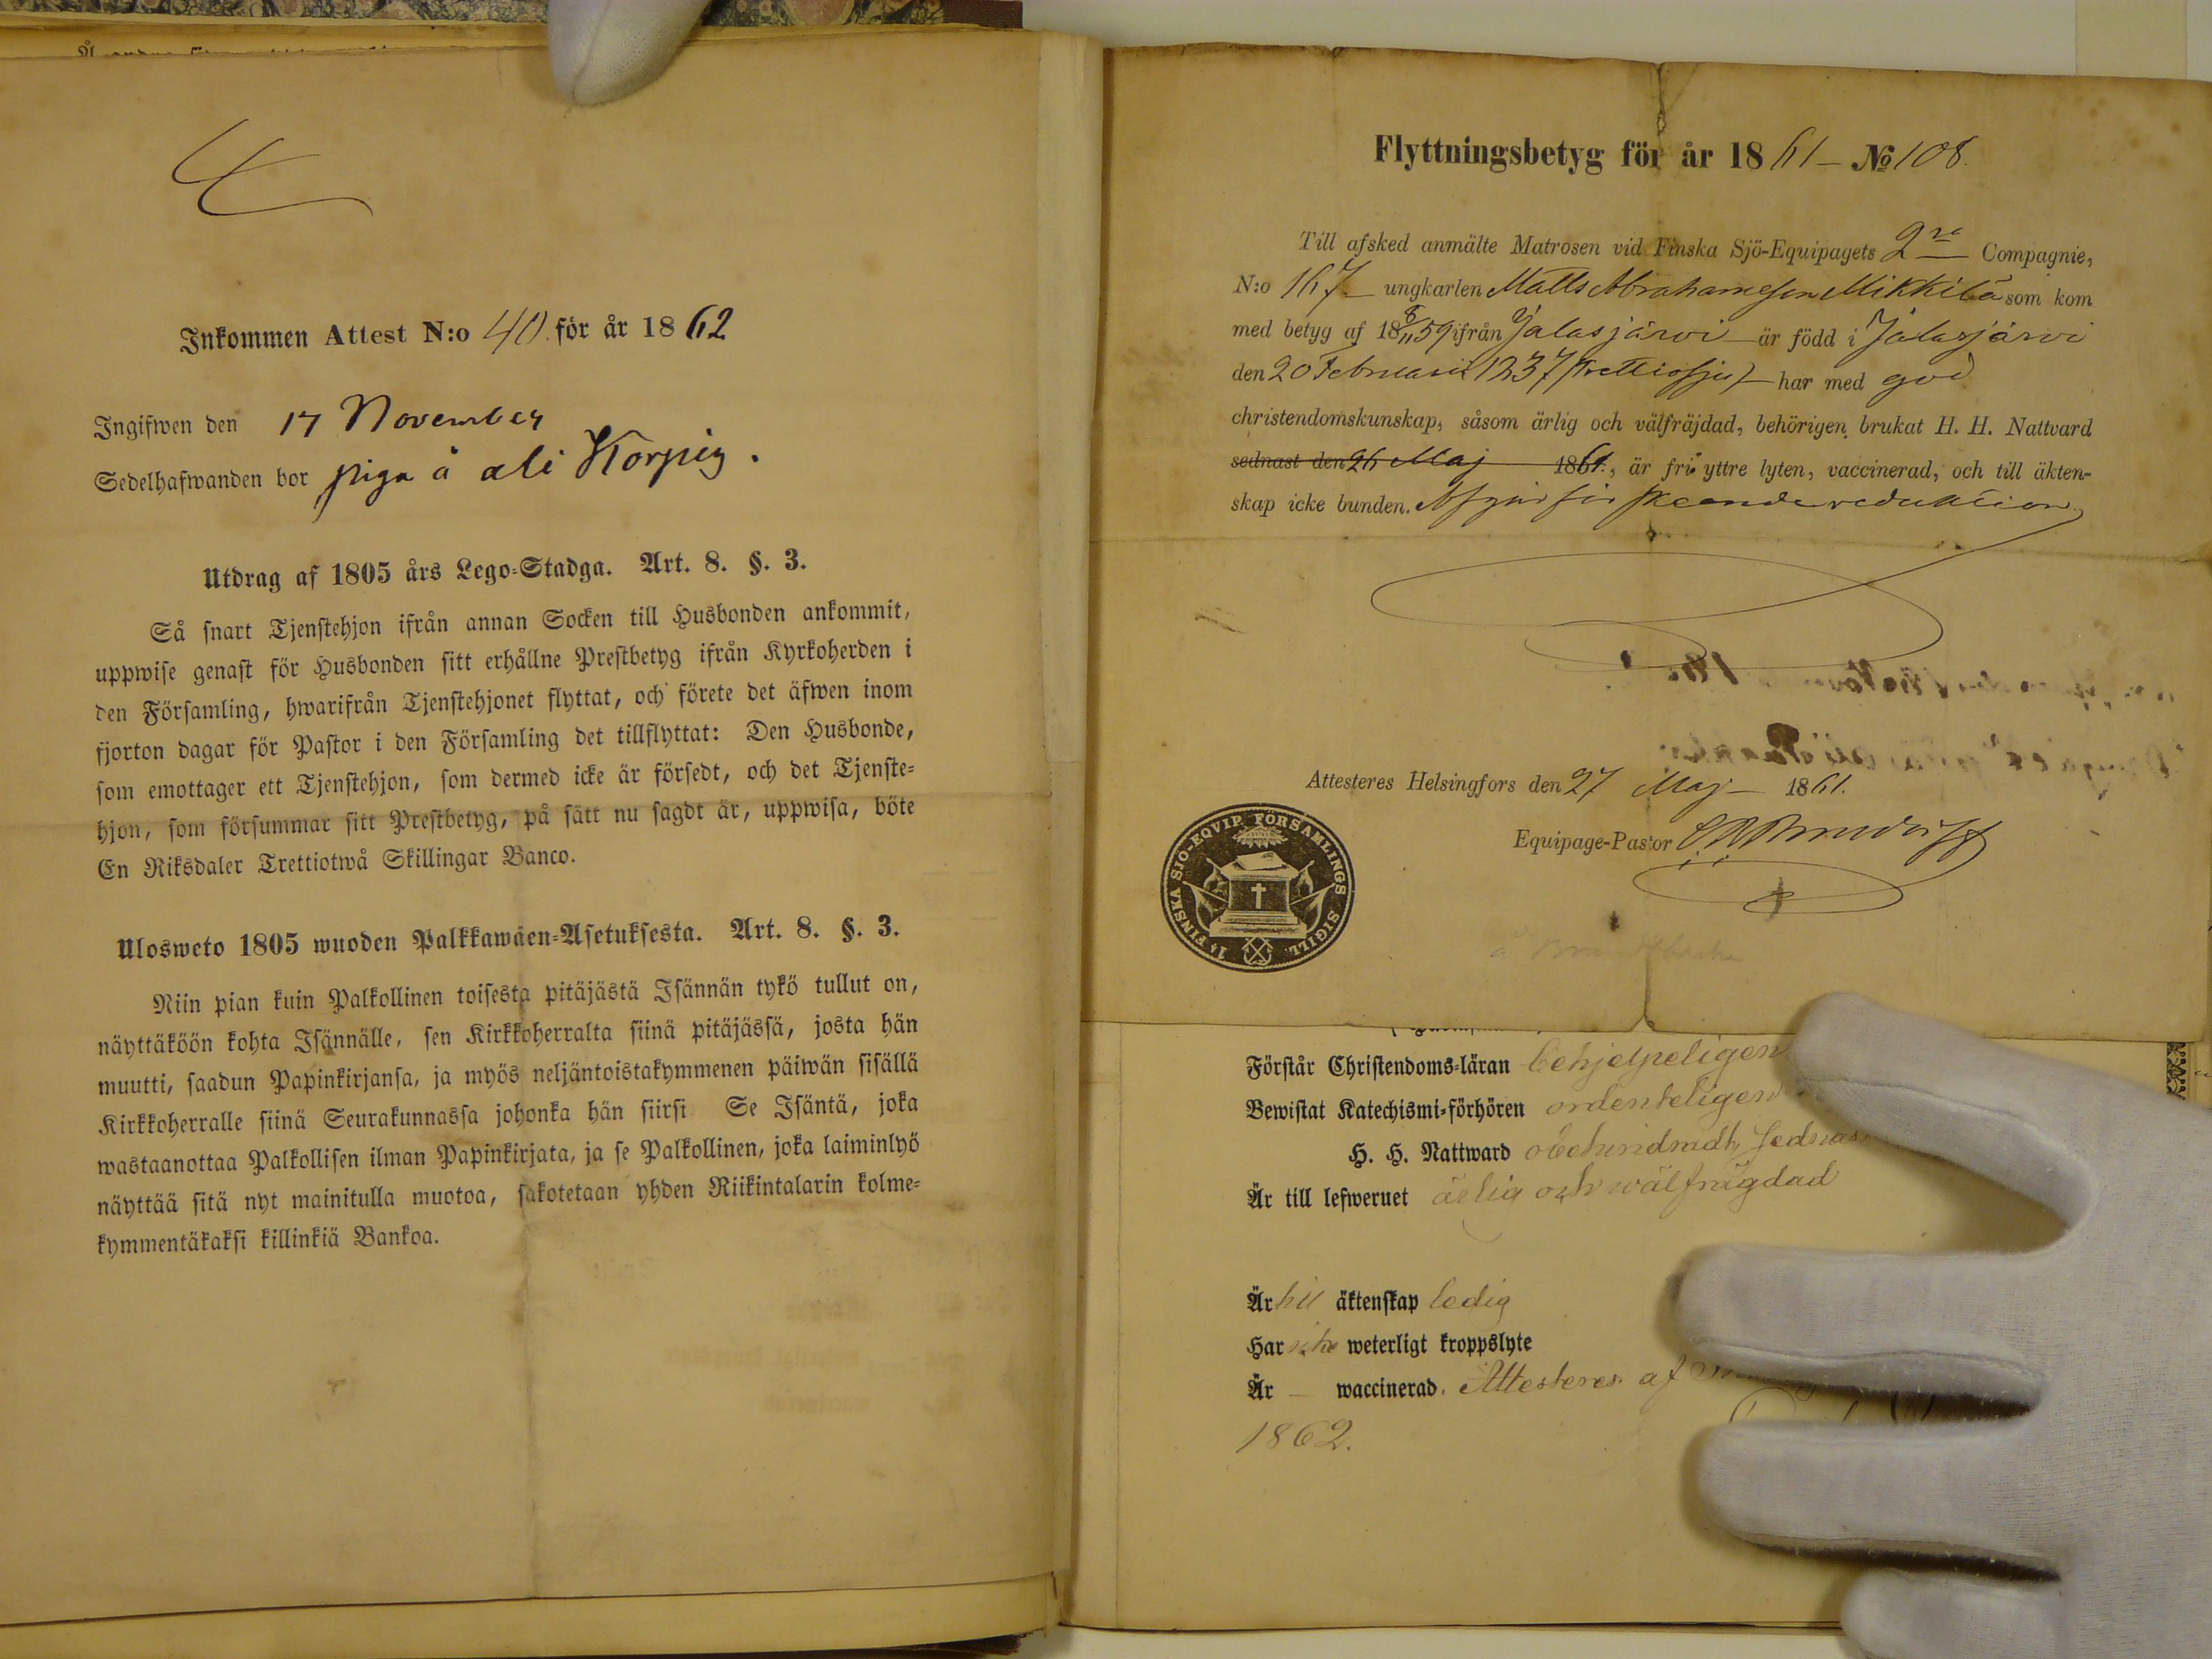 Inkommen Attest N:o 40. för år 1862
Ingifwen den 17 November
Sedelhafwanden bor piga å ali Korpig.
Utdrag af 1805 års Lego-Stadga. Art. 8. §. 3.
Så snart Tjenstehjon ifrån annan Socken till Husbonden ankommit,
uppwise genast för Husbonden sitt erhållne Prestbetyg ifrån Kyrkoherden i
den Församling, hwarifrån Tjenstehjonet flyttat, och förete det äfwen inom
fjorton dagar för Pastor i den Församling det tillflyttat: Den Husbonde,
som emottager ett Tjenstehjon, som dermed icke är försedt, och det Tjenste-
hjon, som försummar sitt Prestbetyg, på sätt nu sagdt är, uppwisa, böte
En Riksdaler Trettiotwå Skillingar Banco.
Ulosweto 1805 wuoden Palkkawäen-Asetuksesta. Art. 8. §. 3.
Niin pian kuin Palkollinen toisesta pitäjästä Isännän tykö tullut on,
näyttäköön kohta Isännälle, sen Kirkkoherralta siinä pitäjässä, josta hän
muutti, saadun Papinkirjansa, ja myös neljäntoistakymmenen päiwän sisällä
Kirkkoherralle siinä Seurakunnassa johonka hän siirsi Se Isäntä, joka
wastaanottaa Palkollisen ilman Papinkirjata, ja se Palkollinen, joka laiminlyö
näyttää sitä nyt mainitulla muotoa, sakotetaan yhden Riikintalarin kolme-
kymmentäkaksi killinkiä Bankoa.
Flyttningsbetyg för år 1861 - No 108.
Till afsked anmälte Matrosen vid Finska Sjö-Equipagets 2ra Compagnie,
N:o 167 ungkarlen Matts Abrahamsson Mikkilä som kom
med betyg af 18 8/11 59 ifrån Jalasjärvi är född i Jalasjärvi
den 20 Februarii 1837 (trettiosju) har med god
christendomskunskap, såsom ärlig och välfräjdad, behörigen brukat H. H. Nattvard
sednast den 26 Maj 1861., är fri yttre lyten, vaccinerad, och till äkten-
skap icke bunden. Afgår för skeende reduktion.
Attesteres Helsingfors den 27 Maj 1861.
Equipage-Pastor
1a FINSKA SJÖ-EQVIP. FÖRSAMLINGS SIGILL.
Förstår Christendoms-läran behjelpeligen
Bewistat Katechismi-förhören ordenteligen
H. H. Nattward obehindradt, sednas
Är till lefweruet ärlig och wälfrägdad
Är till äktenskap ledig
Har icke weterligt kroppslyte
Är — waccinerad. Attesteres af
1862.